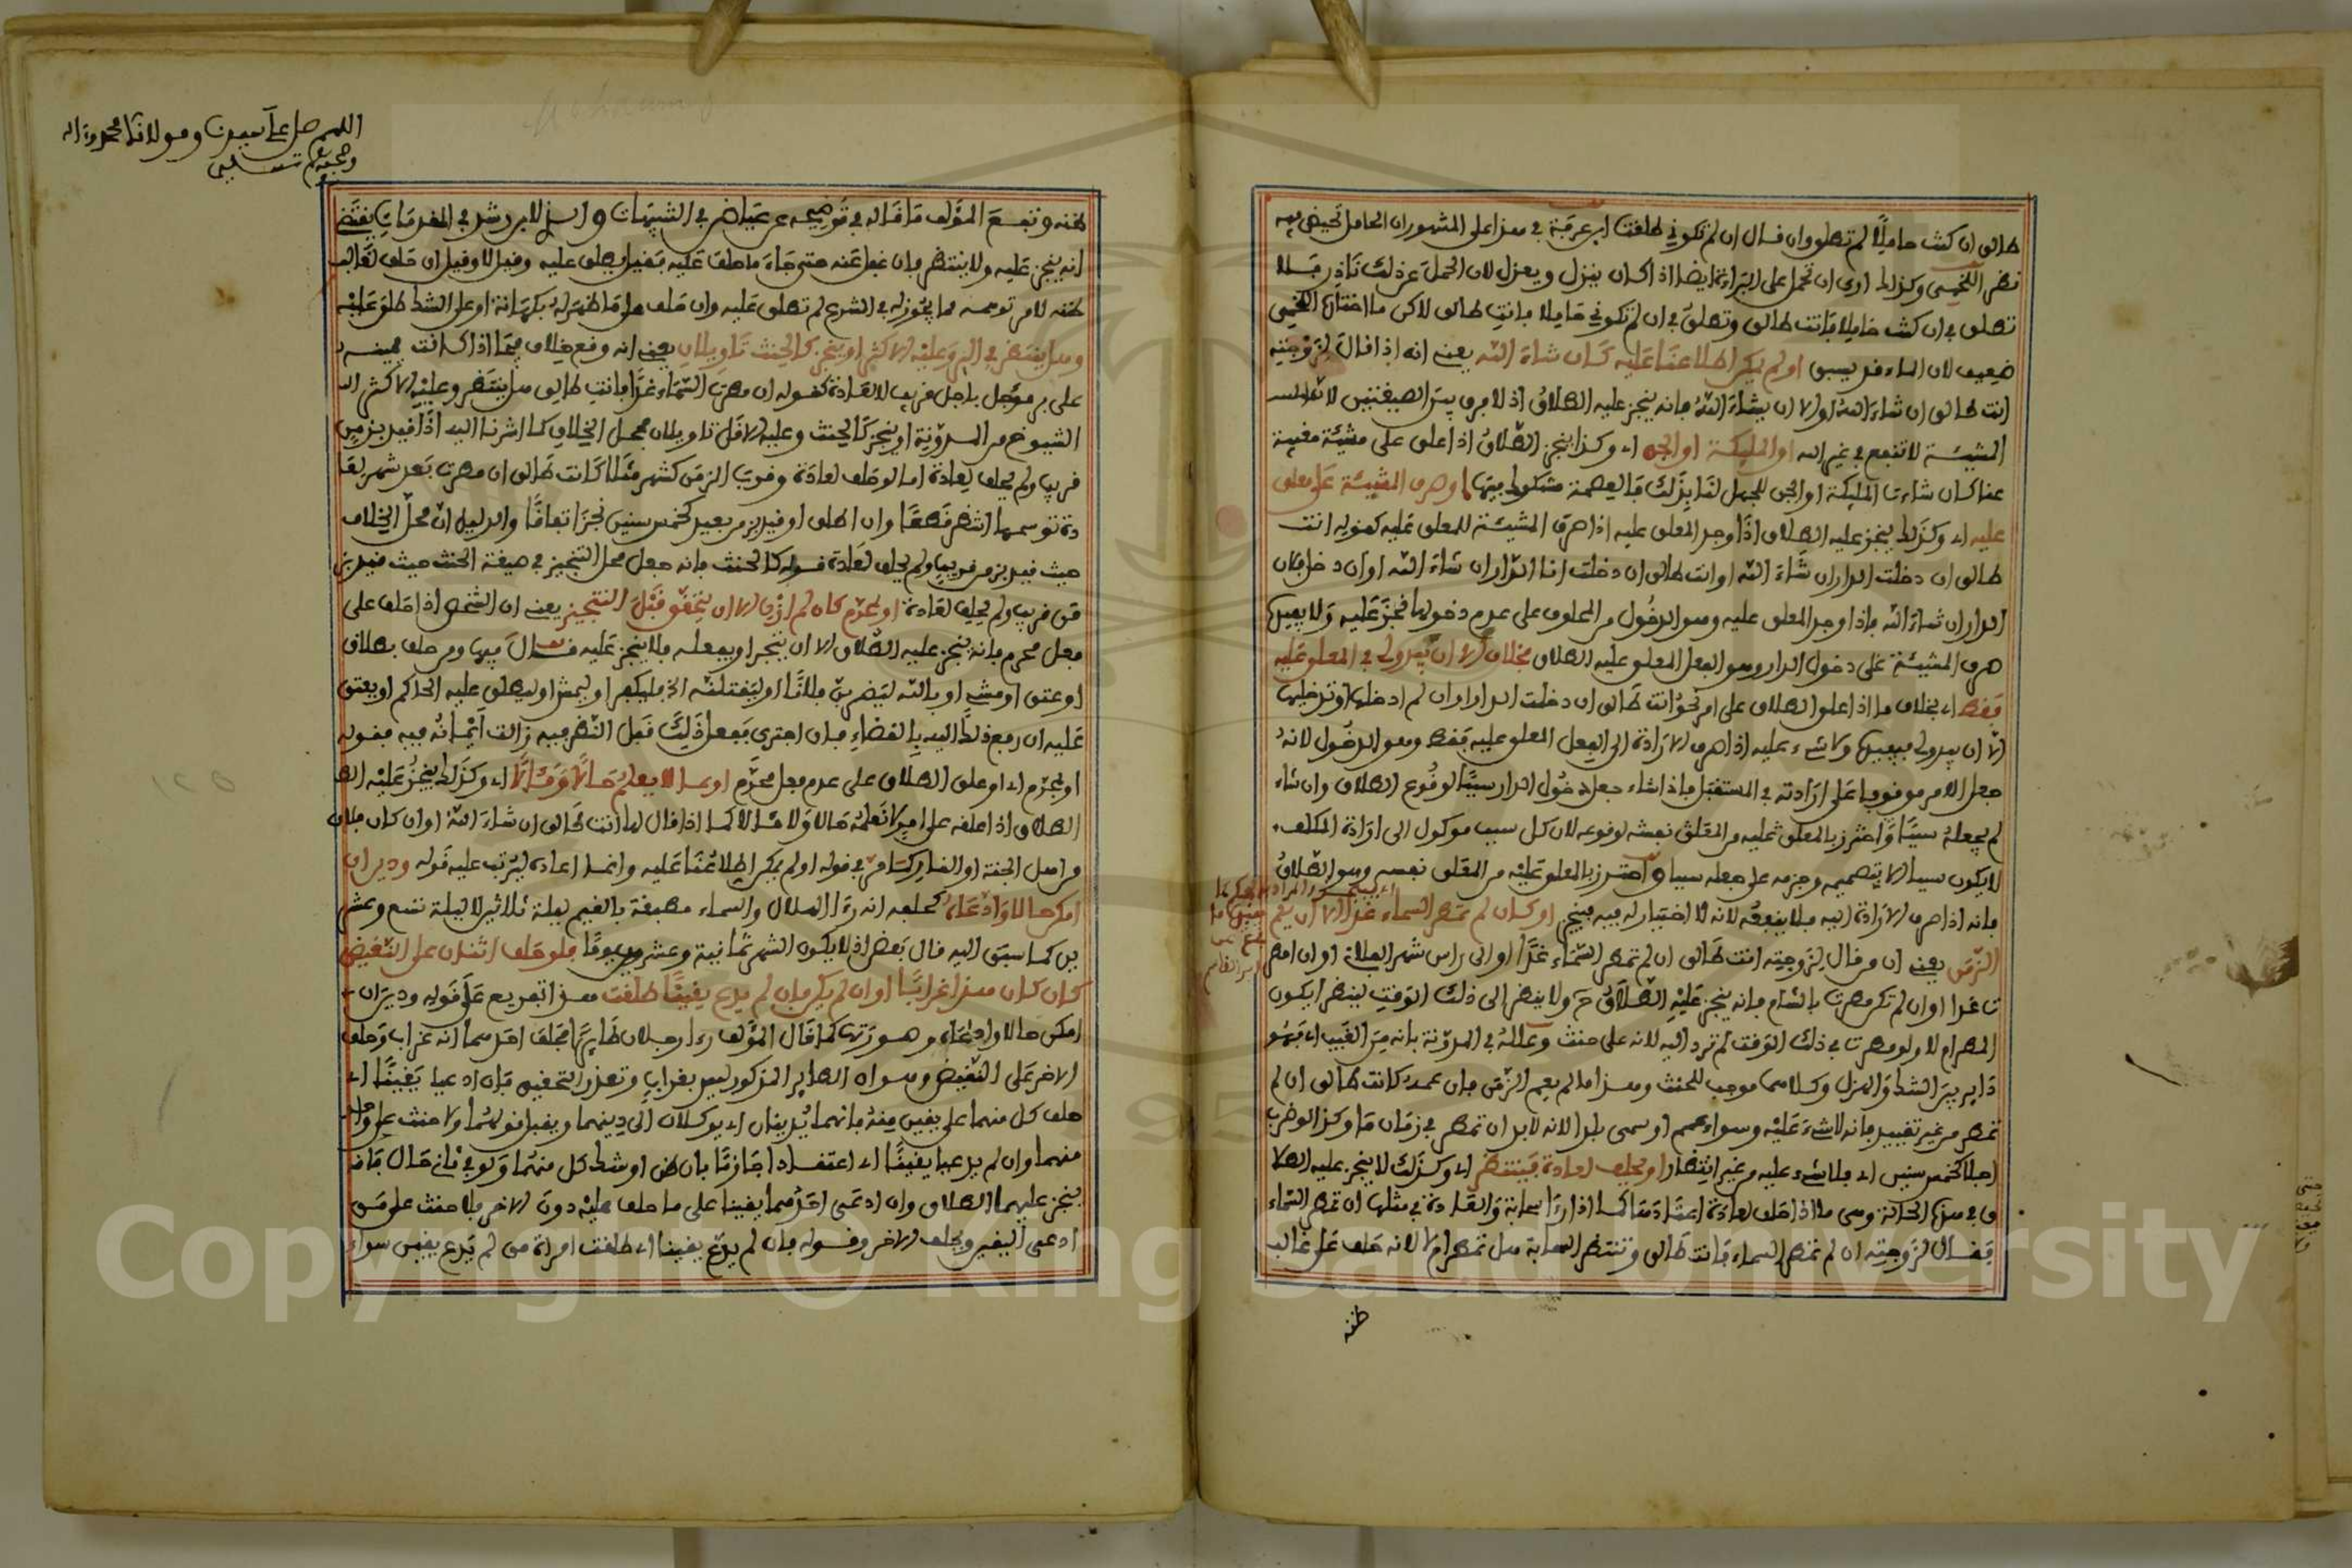 طالق ان كنت حاملا لم تطلق وان قال ان لم تكوني طلقت ابن عرفة في هذا على المشهور ان الحامل تحيض فيه
نظر اللخمي وكذلك ارى ان تحمل على البراءة ايضا اذا كان ينزل ويعزل لان الحمل عن ذلك نادر فلا
تطلق في ان كنت حاملا فانت طالق وتطلق في ان لم تكوني حاملا فانت طالق لاكن ما اختاره اللخمي
ضعيف لان الماء قد يسبق او لم يمكن اطلاعنا عليه كان شاء الله يعني انه اذا قال لزوجته
انت طالق ان شاء الله او الا ان يشاء الله فانه ينجز عليه الطلاق اذ لا فرق بين الصيغتين لان
المشيئة لا تنفع في غير الله او المليكة او الجن اي وكذا ينجز الطلاق اذا علق على مشيئة مغيبة
عنا كان شاءت المليكة او الجن للجهل لنا بذلك فالعصمة مشكوك فيها او صرف المشيئة على معلق
عليه اي وكذلك ينجز عليه الطلاق اذا وجد المعلق عليه اذا صرف المشيئة للمعلق عليه كقوله انت
طالق ان دخلت الدار ان شاء الله او انت طالق ان دخلت انا الدار ان شاء الله او ان دخل فلان
الدار ان شاء الله فاذا وجد المعلق عليه وهو الدخول من المحلوف على عدم دخولها نجز عليه ولا يفيده
صرف المشيئة على دخول الدار وهو الفعل المعلق عليه الطلاق بخلاف الا ان يبدو لي في المعلق عليه
فقط اي بخلاف ما اذا علق الطلاق على امر نحو انت طالق ان دخلت الدار او ان لم ادخلها او تدخليها
الا ان يبدو لي فيفيده ولا شيء عليه اذا صرف الارادة الى الفعل المعلق عليه فقط وهو الدخول لانه
جعل الامر موقوفا على ارادته في المستقبل فاذا شاء جعل دخول الدار سببا لوقوع الطلاق وان شاء
لم يجعله سببا واحترز بالمعلق عليه من المعلق نفسه لوقوعه لان كل سبب موكول الى ارادة المكلف
لا يكون سببا الا بتصميمه وجزمه على جعله سببا واحترز بالمعلق عليه من المعلق نفسه وهو الطلاق
فانه اذا صرف الارادة اليه فلا ينفعه لانه لا اختيار له فيه فينجز او كان لم تمطر السماء غدا الا ان يعم
الزمن يعني ان من قال لزوجته انت طالق ان لم تمطر السماء غدا او الى راس شهر او ان امطر
ت غدا او ان لم تكن مطرت بالشام فانه ينجز عليه الطلاق ولا ينتظر الى ذلك الوقت لينظر ايكون
المطر ام لا ولو مطرت في ذلك الوقت لم ترد اليه لانه على حنث وعلله في المدونة بانه من الغيب اي فهو
داير بين الشك والهزل وكلاهما موجب للحنث وهذا ما لم يعم الزمن فان عمه كانت طالق ان لم
تمطر من غير تقييد فانه لا شيء عليه وسواء عمم او سمى بلدا لانه لا بد ان تمطر في زمان ما وكذا لو ضرب
اجلا كخمس سنين اي فلا شيء عليه من غير انتظار او يحلف لعادة فينتظر اي وكذلك لا ينجز عليه الطلا
ق في هذه الحالة وهي ما اذا حلف لعادة اعتادها كما اذا رءا سحابة والعادة في مثلها ان تمطر السماء
فقال لزوجته ان لم تمطر السماء فانت طالق وتنتظر السحابة هل تمطر ام لا لانه حلف على غالب
ظنه
اللهم صل على سيدنا ومولانا محمد وءاله
وصحبه وسلم تسليما
ظنه وتبع المؤلف ما قاله في توضيحه عن عياض في التنبيهات والذي لابن رشد في المقدمات يقتضي
انه ينجز عليه ولا ينتظر فان غفل عنه حتى جاء ما حلف عليه فقيل يطلق عليه وقيل لا وقيل ان حلف لغالب
ظنه لامر توسمه مما يجوز له في الشرع لم تطلق عليه وان حلف على ما ظهر له بكهانة او على الشك طلق عليه
وهل ينتظر في البر وعليه الاكثر او ينجز كالحنث تاويلان يعني انه وقع خلاف فيما اذا كانت يمينه
على بر مؤجل باجل قريب لا لعادة كقوله ان مطرت السماء غدا فانت طالق هل ينتظر وعليه الاكثر الـ
الشيوخ من المدونة او ينجز كالحنث وعليه الاقل تاويلان محل الخلاف كما اشرنا اليه اذا قيد بزمن
قريب ولم يحلف لعادة اما لو حلف لعادة وقرب الزمن كشهر مثلا كانت طالق ان مطرت بعد شهر لعا
دة توسمها انتظر قطعا وان اطلق او قيد بزمن بعيد كخمس سنين نجز اتفاقا والدليل ان محل الخلاف
حيث قيد بزمن قريب ولم يحلف لعادة قوله كالحنث فانه جعل محل التنجيز في صيغة الحنث حيث قيد بز
من قريب ولم يحلف لعادة او بمحرم كان لم ازن الا ان يتحقق قبل التنجيز يعني ان الشخص اذا حلف على
فعل محرم فانه ينجز عليه الطلاق الا ان يتجرا ويفعله فلا ينجز عليه قال فيها ومن حلف بطلاق
او عتق او مشي او بالله ليضربن فلانا او ليقتلنه فليكفر او ليمش او ليطلق عليه الحاكم او يعتق
عليه ان رفع ذلك اليه بالقضاء فان اجترى ففعل ذلك قبل النظر فيه زالت ايمانه فيه فقوله
او بمحرم اي او علق الطلاق على عدم فعل محرم او بما لا يعلم حالا ومئالا اي وكذلك ينجز عليه الط
الطلاق اذا علقه على امر لا نعلمه حالا ولا مئالا كما اذا قال لها انت طالق ان شاء الله او ان كان فلان
من اهل الجنة او النار كما مر في قوله او لم يمكن اطلاعنا عليه وانما اعاده ليرتب عليه قوله ودين ان
امكن حالا وادعاه كحلفه انه رءا الهلال والسماء مطبقة بالغيم ليلة ثلاثين لا ليلة تسع وعشر
ين كما سبق اليه قال بعض اذ لا يكون الشهر ثمانية وعشرين يوما فلو حلف اثنان على النقيض
كان كان هذا غرابا او ان لم يكن فان لم يدع يقينا طلقت هذا تفريع على قوله ودين ان
امكن حالا وادعاه وصورتها كما قال المؤلف رءا رجلان طايرا فحلف احدهما انه غراب وحلف
الاخر على النقيض وهو ان الطاير المذكور ليس بغراب وتعذر التحقيق فان ادعيا يقينا اي
حلف كل منهما على يقين منه فانهما يدينان اي يوكلان الى دينهما ويقبل قولهما ولا حنث على واحد
منهما وان لم يدعيا يقينا اي اعتقادا جازما بان ظن او شك كل منهما ولو في ثاني حال فانه
ينجز عليهما الطلاق وان ادعى احدهما يقينا على ما حلف عليه دون الاخر فلا حنث على من
ادعى اليقين ويحلف الاخر وقوله فان لم يدع يقينا اي طلقت امراة من لم يدع يقين سواء
Copyright © King Saud University